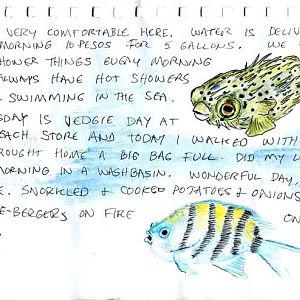 VERY COMFORTABLE HERE. WATER IS DELIV
MORNING 10 PESOS FOR 5 GALLONS. WE
SHOWER THINGS EVERY MORNING
ALWAYS HAVE HOT SHOWERS
SWIMMING IN THE SEA.
SDAY IS VEDGIE DAY AT
EACH STORE AND TODAY I WALKED WITH
ROUGHT HOME A BIG BAG FULL. DID MY L
MORNING IN A WASHBASIN. WONDERFUL DAY,
E. SNORKLED & COOKED POTATOES & ONIONS
E-BERGERS ON FIRE ON